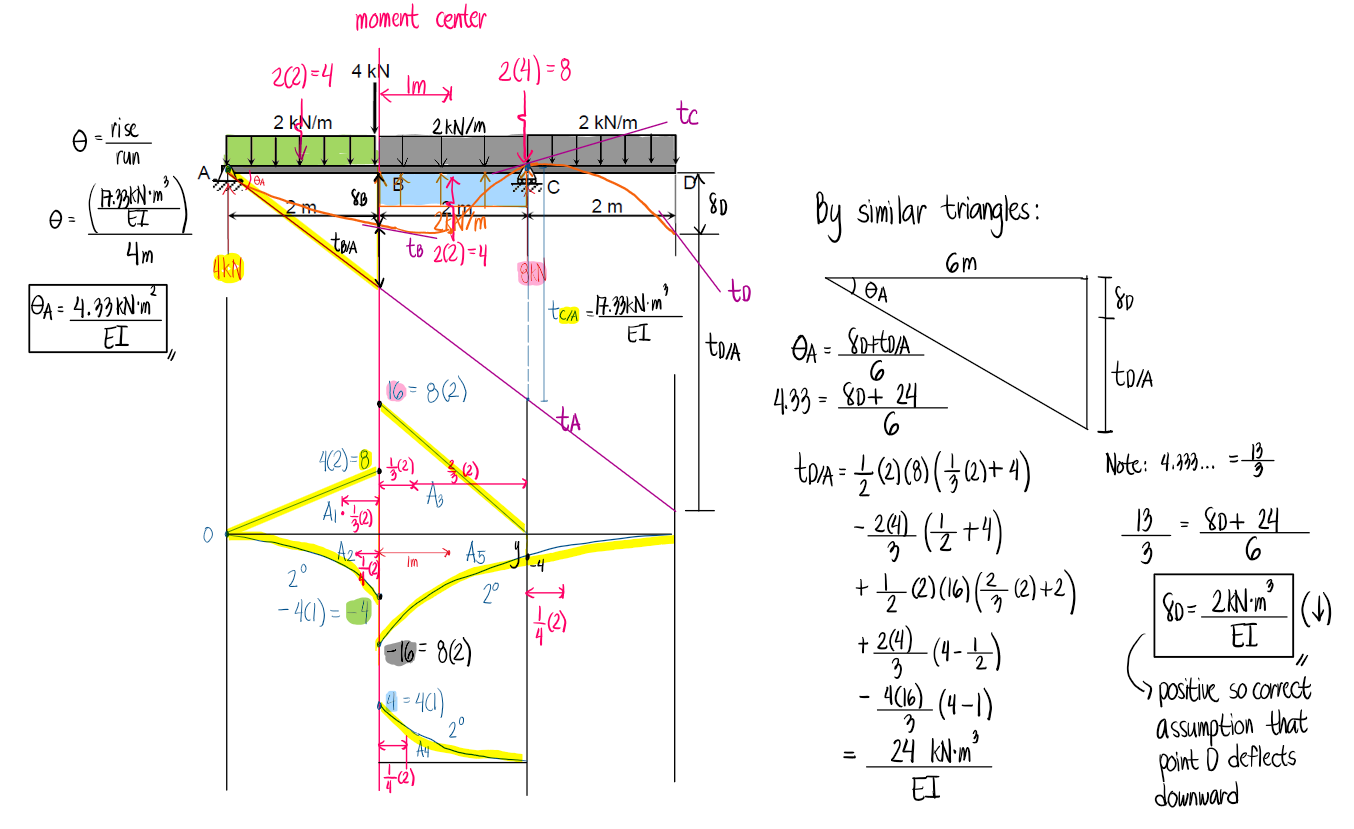 moment center
2(2)=4
4 kN
1m
2(4)=8
2 kN/m
2kN/m
2 kN/m
tC
θ = rise
run
A
θA
δB
B
C
D
2 m
2 m
2 m
δD
2kN/m
tB/A
tB
2(2)=4
θ = (17.33kN·m³
EI)
4m
4kN
8kN
tD
θA = 4.33kN·m²
EI
tC/A = 17.33kN·m³
EI
tD/A
16 = 8(2)
tA
4(2)=8
1/3(2)
2/3(2)
A1
1/3(2)
A3
0
A2
1/4(2)
1m
A5
y
-4
2°
2°
-4(1) = -4
1/4(2)
-16 = 8(2)
4 = 4(1)
2°
A4
1/4(2)
By similar triangles:
6m
θA
δD
tD/A
θA = δD+tD/A
6
4.33 = δD + 24
6
tD/A = 1/2 (2)(8)(1/3(2)+4)
- 2(4)/3 (1/2 +4)
+ 1/2 (2)(16)(2/3 (2)+2)
+ 2(4)/3 (4-1/2)
- 4(16)/3 (4-1)
= 24 kN·m³
EI
Note: 4.333... = 13/3
13/3 = δD + 24
6
δD = 2kN·m³
EI
(↓)
positive so correct
assumption that
point D deflects
downward